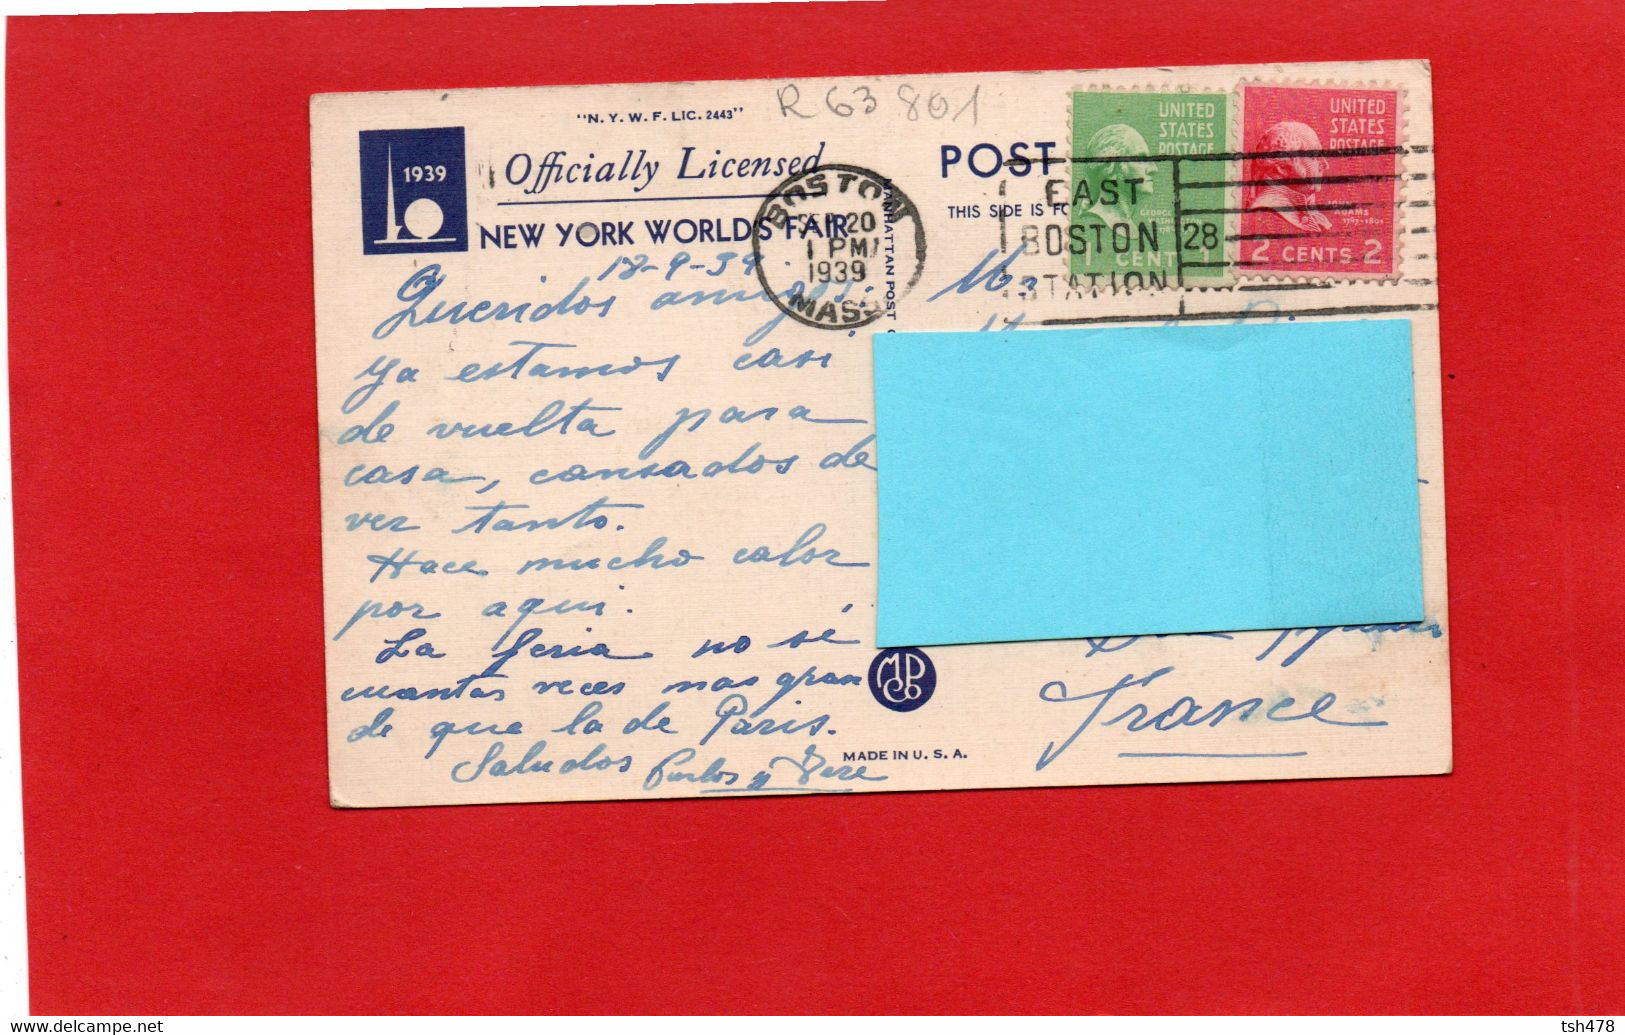 "N. Y. W. F. LIC. 2443"
R 63 801
1939
Officially Licensed
NEW YORK WORLD'S FAIR
POST
THIS SIDE IS FO
BOSTON
SEP 20
1 PM
1939
MASS.
EAST
BOSTON
STATION
28
UNITED
STATES
POSTAGE
GEORGE
WASHINGTON
1 CENT 1
UNITED
STATES
POSTAGE
JOHN
ADAMS
1797-1801
2 CENTS 2
MANHATTAN POST C
18-9-39.
Queridos amigos:
Ya estamos casi
de vuelta para
casa, cansados de
ver tanto.
Hace mucho calor
por aqui.
La feria no sé
cuantas veces mas gran
de que la de Paris.
Saludos
Carlos y
Mr
France
MPCo
MADE IN U. S. A.
tsh478